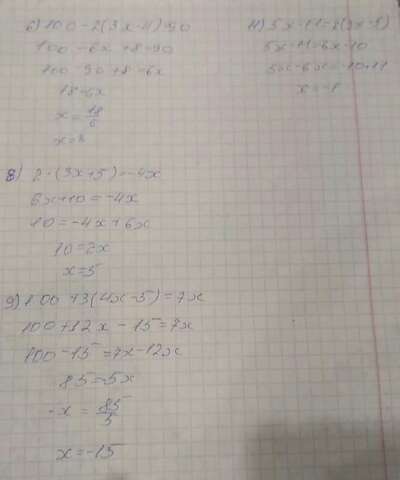 6) 100 - 2(3x-4) = 90
100 - 6x + 8 = 90
100 - 90 + 8 = 6x
18 = 6x
x = 18/6
x = 3
8) 2 · (3x+5) = -4x
6x + 10 = -4x
10 = -4x + 6x
10 = 2x
x = 5
9) 100 + 3(4x-5) = 7x
100 + 12x - 15 = 7x
100 - 15 = 7x - 12x
85 = 5x
-x = 85/5
x = -15
5x - 11 = 2(3x-5)
5x - 11 = 6x - 10
5x - 6x = -10 + 11
x = -1